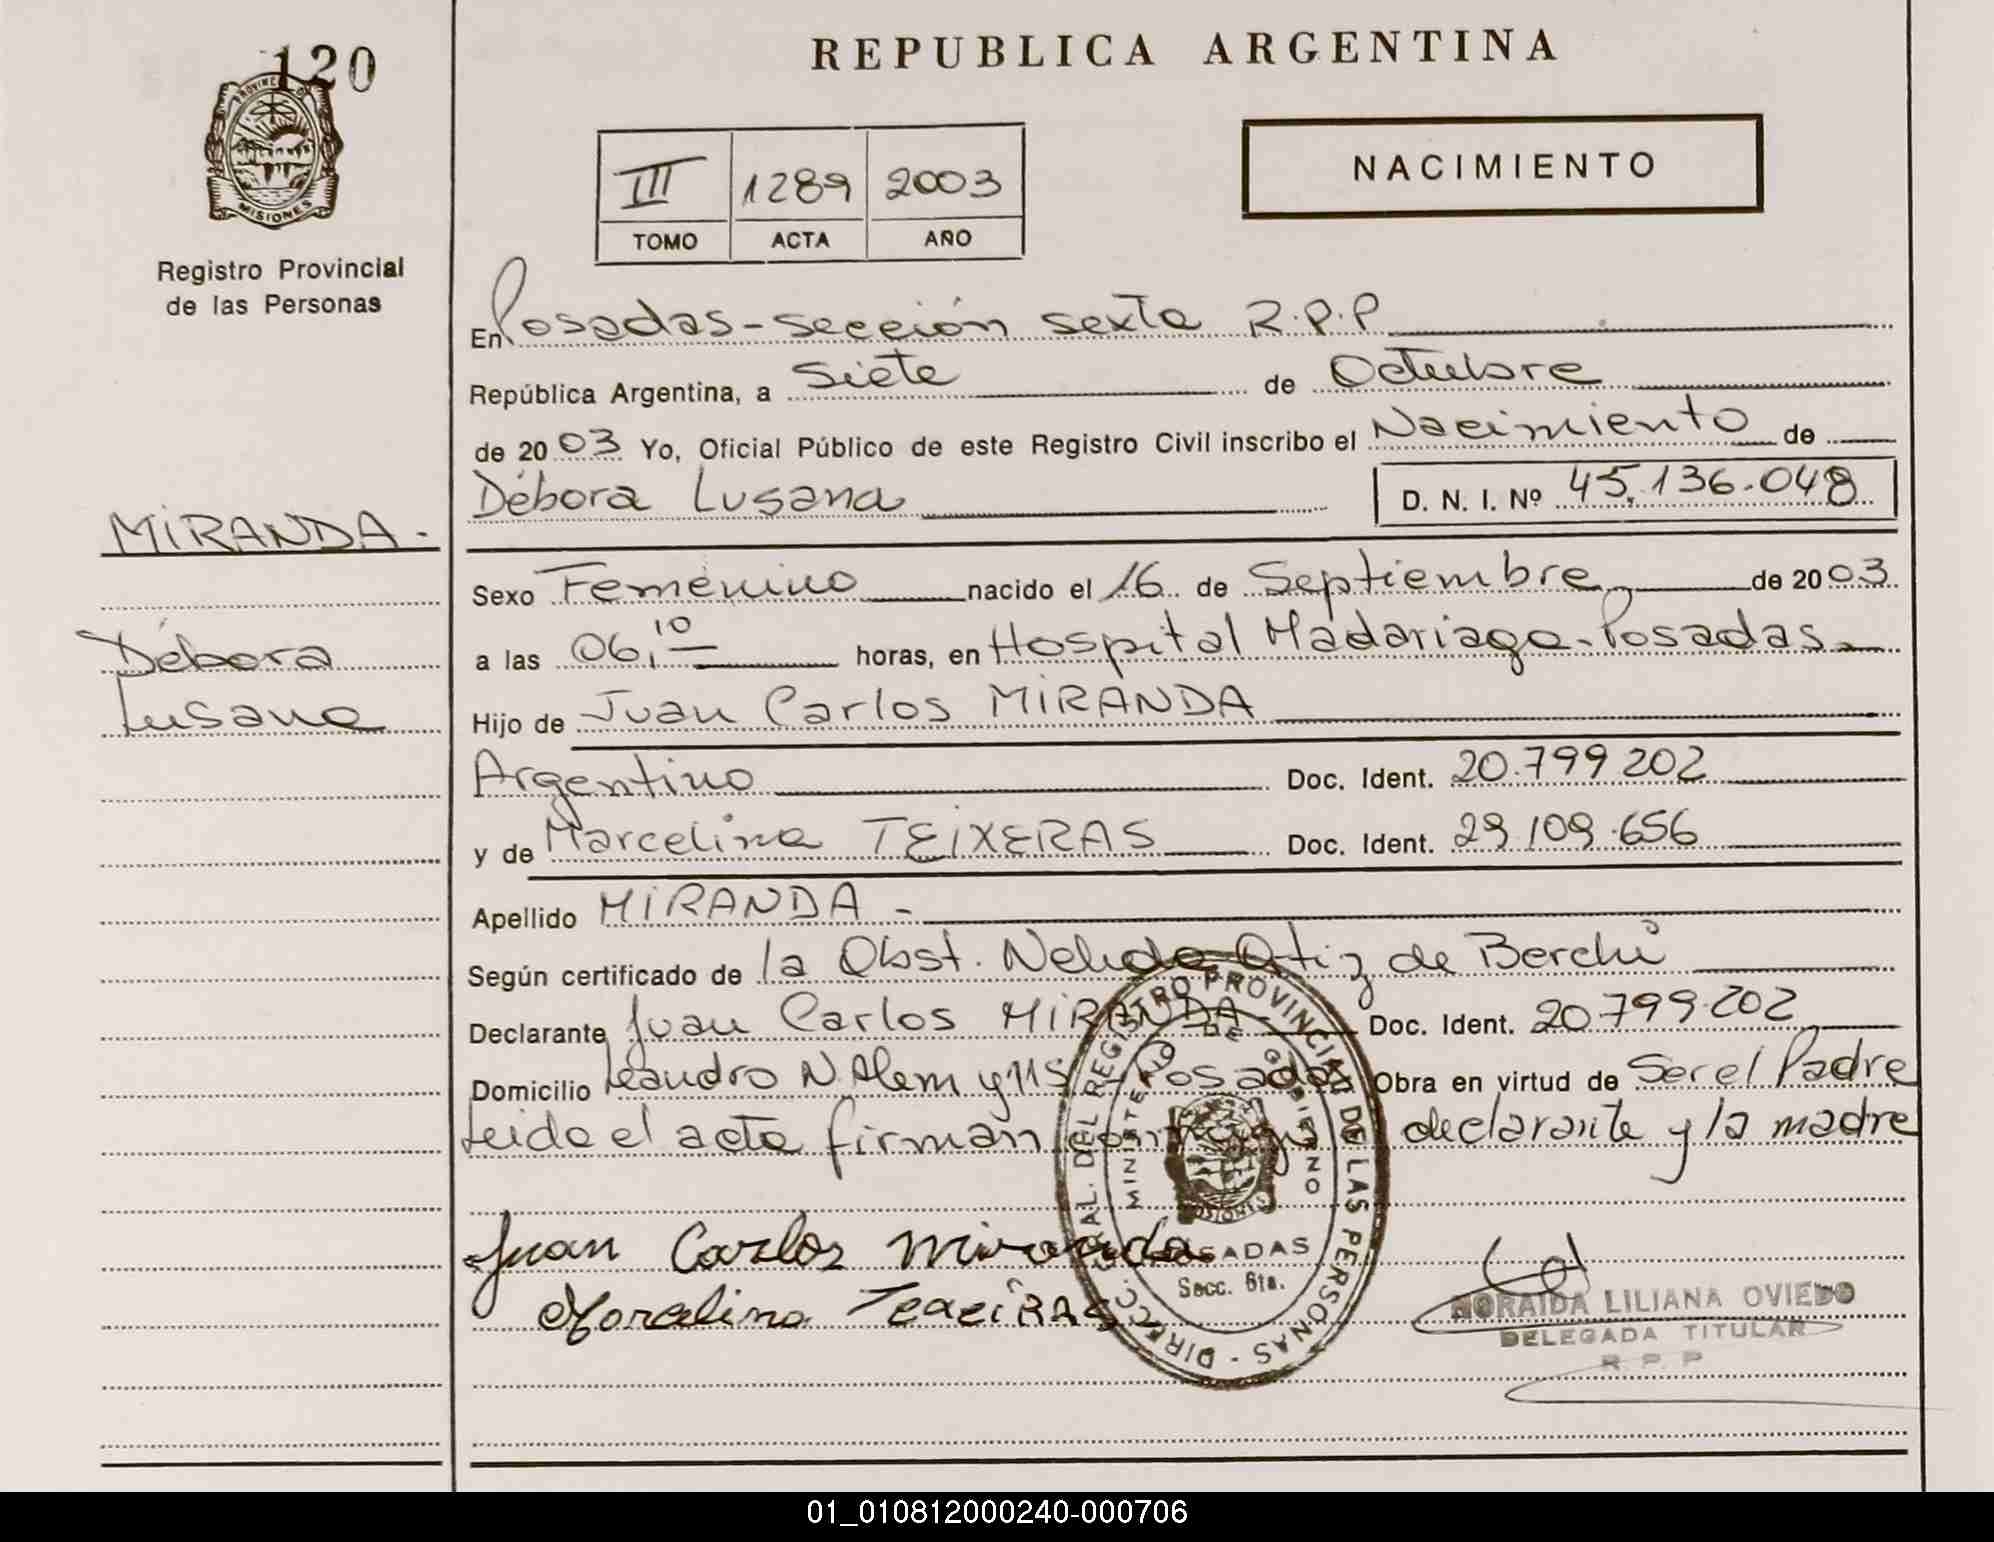 120
PROVINCIA DE
MISIONES
Registro Provincial
de las Personas
MIRANDA.-
Débora
Lusana
REPUBLICA ARGENTINA
III 1289 2003
TOMO ACTA AÑO
NACIMIENTO
En Posadas-sección sexta R.P.P
República Argentina, a siete de Octubre
de 2003 Yo, Oficial Público de este Registro Civil inscribo el Nacimiento de
Débora Lusana D. N. I. Nº 45.136.048
Sexo Femenino nacido el 16 de Septiembre de 2003
a las 06,10 horas, en Hospital Madariaga-Posadas
Hijo de Juan Carlos MIRANDA
Argentino Doc. Ident. 20.799 202
y de Marcelina TEIXERAS Doc. Ident. 29 109.656
Apellido MIRANDA -
Según certificado de la Obst. Nelida Ortiz de Berchi
Declarante Juan Carlos MIRANDA Doc. Ident. 20 799.202
Domicilio Leandro N Alem y 115 - Posadas Obra en virtud de Ser el Padre
Leida el acta firman conmigo declarante y la madre
Juan Carlos Miranda
Marcelina TexeiRAS
DIRECC. GRAL. DEL REGISTRO PROVINCIAL DE LAS PERSONAS -
MINISTERIO DE GOBIERNO
MISIONES
POSADAS
Secc. 6ta.
NORAIDA LILIANA OVIEDO
DELEGADA TITULAR
R. P. P
01_010812000240-000706